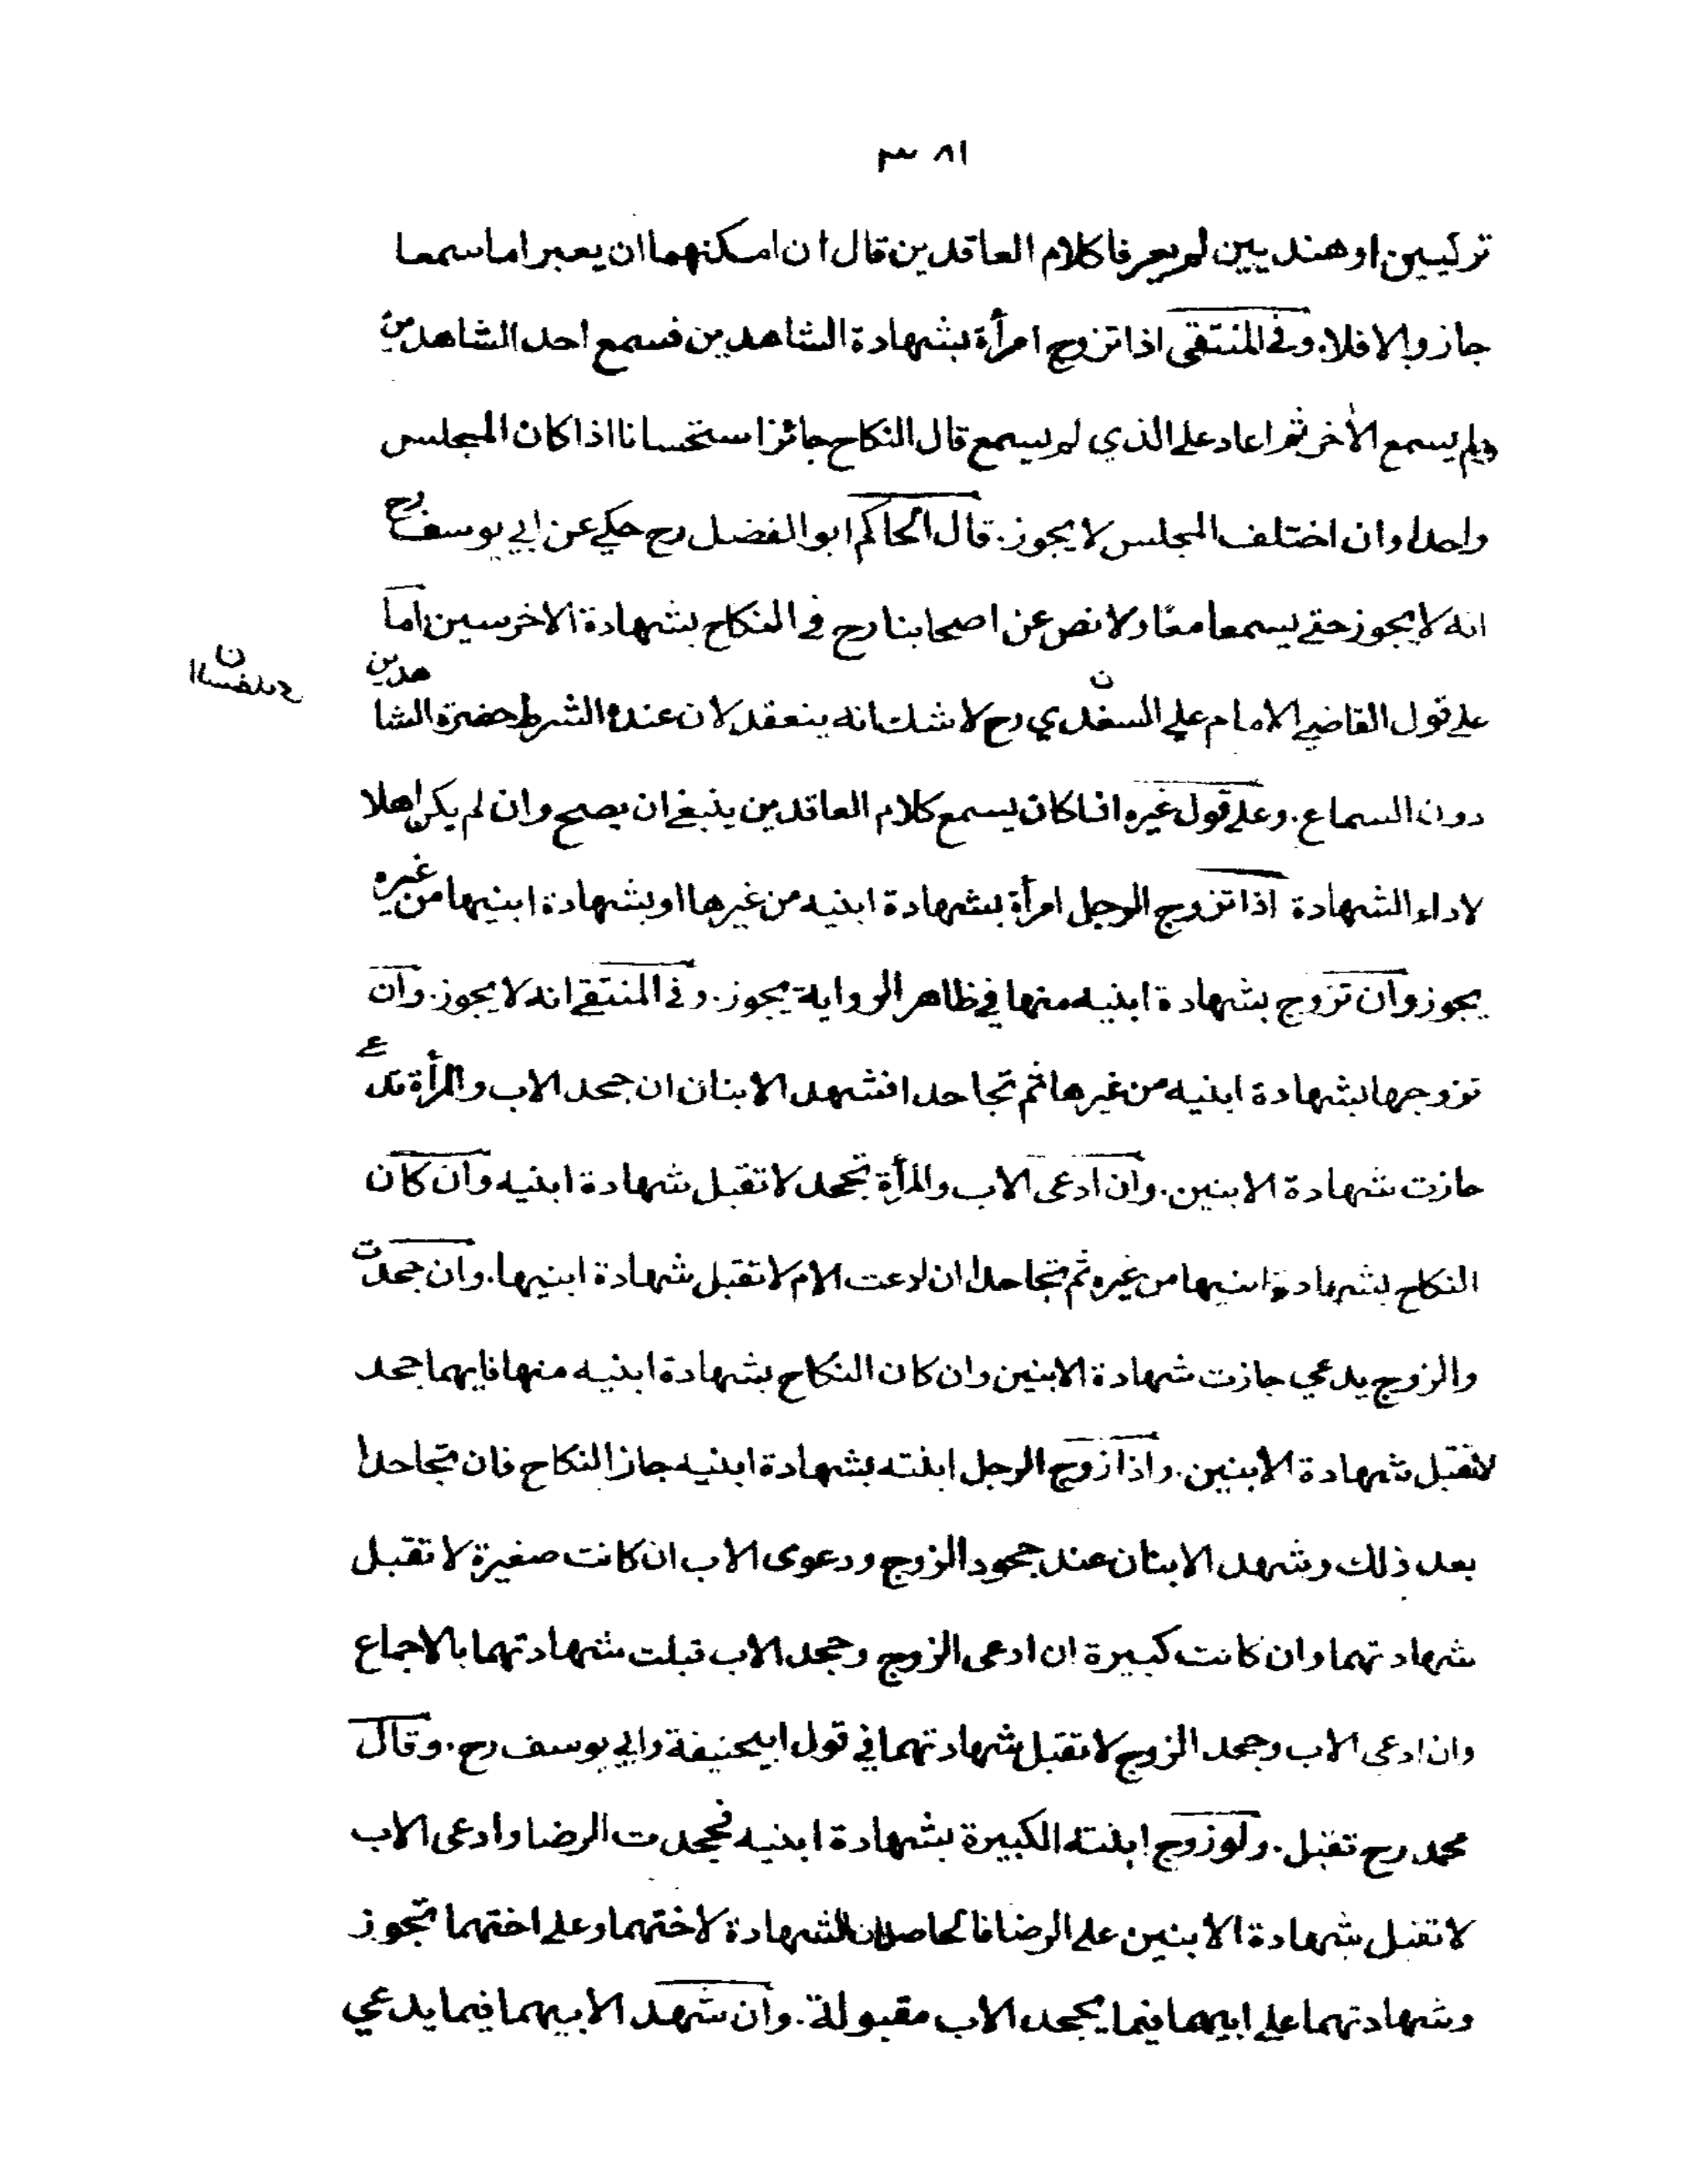 ٣٨١
تركيين او هنديين لم يعرفا كلام العاقدين قال ان امكنهما ان يعبرا ما سمعا
جاز والا فلا، وفي المنتقى اذا تزوج امرأة بشهادة الشاهدين فسمع احد الشاهدين
ولم يسمع الاخر ثم اعاد على الذي لم يسمع قال النكاح جائز استحسانا اذا كان المجلس
واحدا وان اختلف المجلس لا يجوز. قال الحاكم ابو الفضل رح حكي عن ابي يوسف رح
انه لا يجوز حتى يسمعا معًا ولا نص عن اصحابنا رح في النكاح بشهادة الاخرسين اما
على قول القاضي الامام علي السغدي رح لا شك انه ينعقد لان عنده الشرط حضرة الشاهدين
دون السماع. وعلى قول غيره اذا كان يسمع كلام العاقدين ينبغي ان يصح وان لم يكن اهلا
لاداء الشهادة اذا تزوج الرجل امرأة بشهادة ابنيه من غيرها او بشهادة ابنيها من غيره
يجوز وان تزوج بشهادة ابنيه منها في ظاهر الرواية يجوز. وفي المنتقى انه لا يجوز. وان
تزوجها بشهادة ابنيه من غيرها ثم تجاحدا فشهد الابنان ان جحد الاب والمرأة تدعي
جازت شهادة الابنين. وان ادعى الاب والمرأة تجحد لا تقبل شهادة ابنيه وان كان
النكاح بشهادة ابنيها من غيره ثم تجاحدا ان ادعت الام لا تقبل شهادة ابنيها. وان جحدت
والزوج يدعي جازت شهادة الابنين وان كان النكاح بشهادة ابنيه منها فايهما جحد
لا تقبل شهادة الابنين. واذا زوج الرجل ابنته بشهادة ابنيه جاز النكاح فان تجاحدا
بعد ذلك وشهد الابنان عند جحود الزوج ودعوى الاب ان كانت صغيرة لا تقبل
شهادتهما وان كانت كبيرة ان ادعى الزوج وجحد الاب قبلت شهادتهما بالاجماع
وان ادعى الاب وجحد الزوج لا تقبل شهادتهما في قول ابيحنيفة وابي يوسف رح. وقال
محمد رح تقبل. ولو زوج ابنته الكبيرة بشهادة ابنيه فجحدت الرضا وادعى الاب
لا تقبل شهادة الابنين على الرضا فالحاصل ان الشهادة لاختهما وعلى اختهما تجوز
وشهادتهما على ابيهما فيما يجحد الاب مقبولة. وان شهد الابيهما فيما يدعي